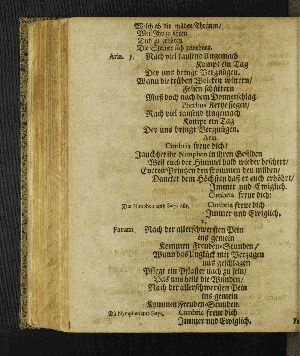 Dich zu erhören
Die Sterne sich
Aria. 3. Nach viel tausend Ungemach
Kompt ein Tag
Der uns bringt Vergnügen.
Wann die trüben Wolcken wittern/
Felsen schüttern
Muß doch nach dem Donnerschlag
Phœbus Kertze siegen/
Nach viel tausend Ungemach
Kompt ein Tag
Der uns bringt Vergnügen.
Aria.
Cimbria freue dich!
Jauchzet ihr Nimphen in ihren Gefilden
Weil euch der Himmel bald wieder beschert/
Eueren Printzen den frommen den milden/
Dancket dem Höchsten daß er euch erhöhrt/
Immer und Ewiglich.
Cimbria freue dich!
Die Nimphen und Satyr alle, Cimbria freue dich
Immer und Ewiglich.
2.
Nach der allerschwersten Pein
ins gemein
Kommen Freuden-Stunden/
Wann das Unglück mit Verzagen
uns geschlagen
Pflegt ein Pflaster nach zu sein/
Das uns heilt die Wunden/
Nach der allerschwersten Pein
ins gemein
Kommen Freuden-Stunden.
Die Nymphen und Satyr. Cimbria freue dich
Immer und Ewiglich.